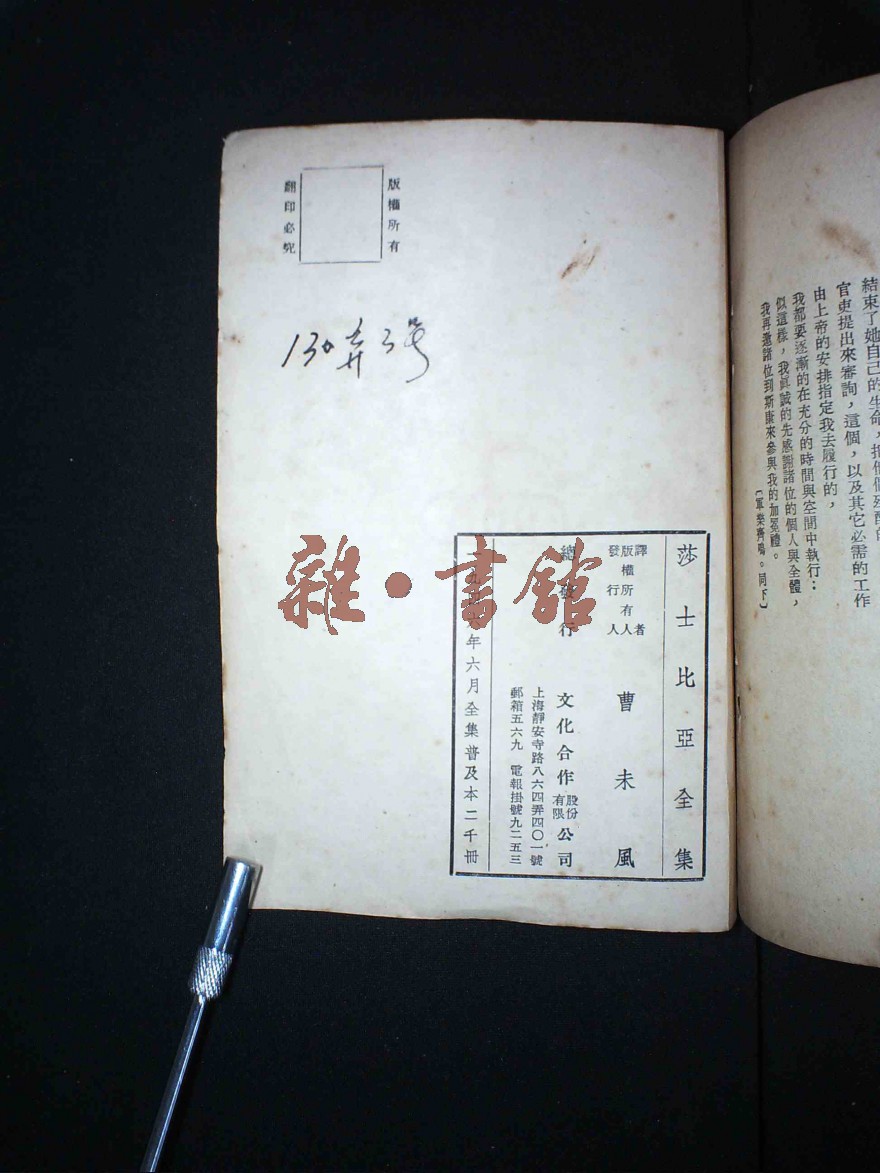 結束了她自己的生命，
官吏提出來審詢，這個，以及其它必需的工作
由上帝的安排指定我去履行的，
我都要逐漸的在充分的時間與空間中執行：
似這樣，我眞誠的先感謝諸位的個人與全體，
我再邀諸位到斯康來參與我的加冕禮。
〔軍樂齊鳴。同下〕
版權所有
翻印必究
130弄3號
莎士比亞全集
譯者
版權所有人
發行人
曹未風
總發行
文化合作股份有限公司
上海靜安寺路八六四弄四〇一號
郵箱五六九 電報掛號九二五三
年六月全集普及本二千冊
雜·書館